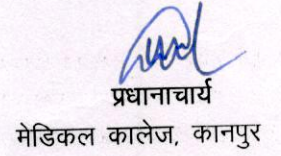 प्रधानाचार्य
मेडिकल कालेज, कानपुर